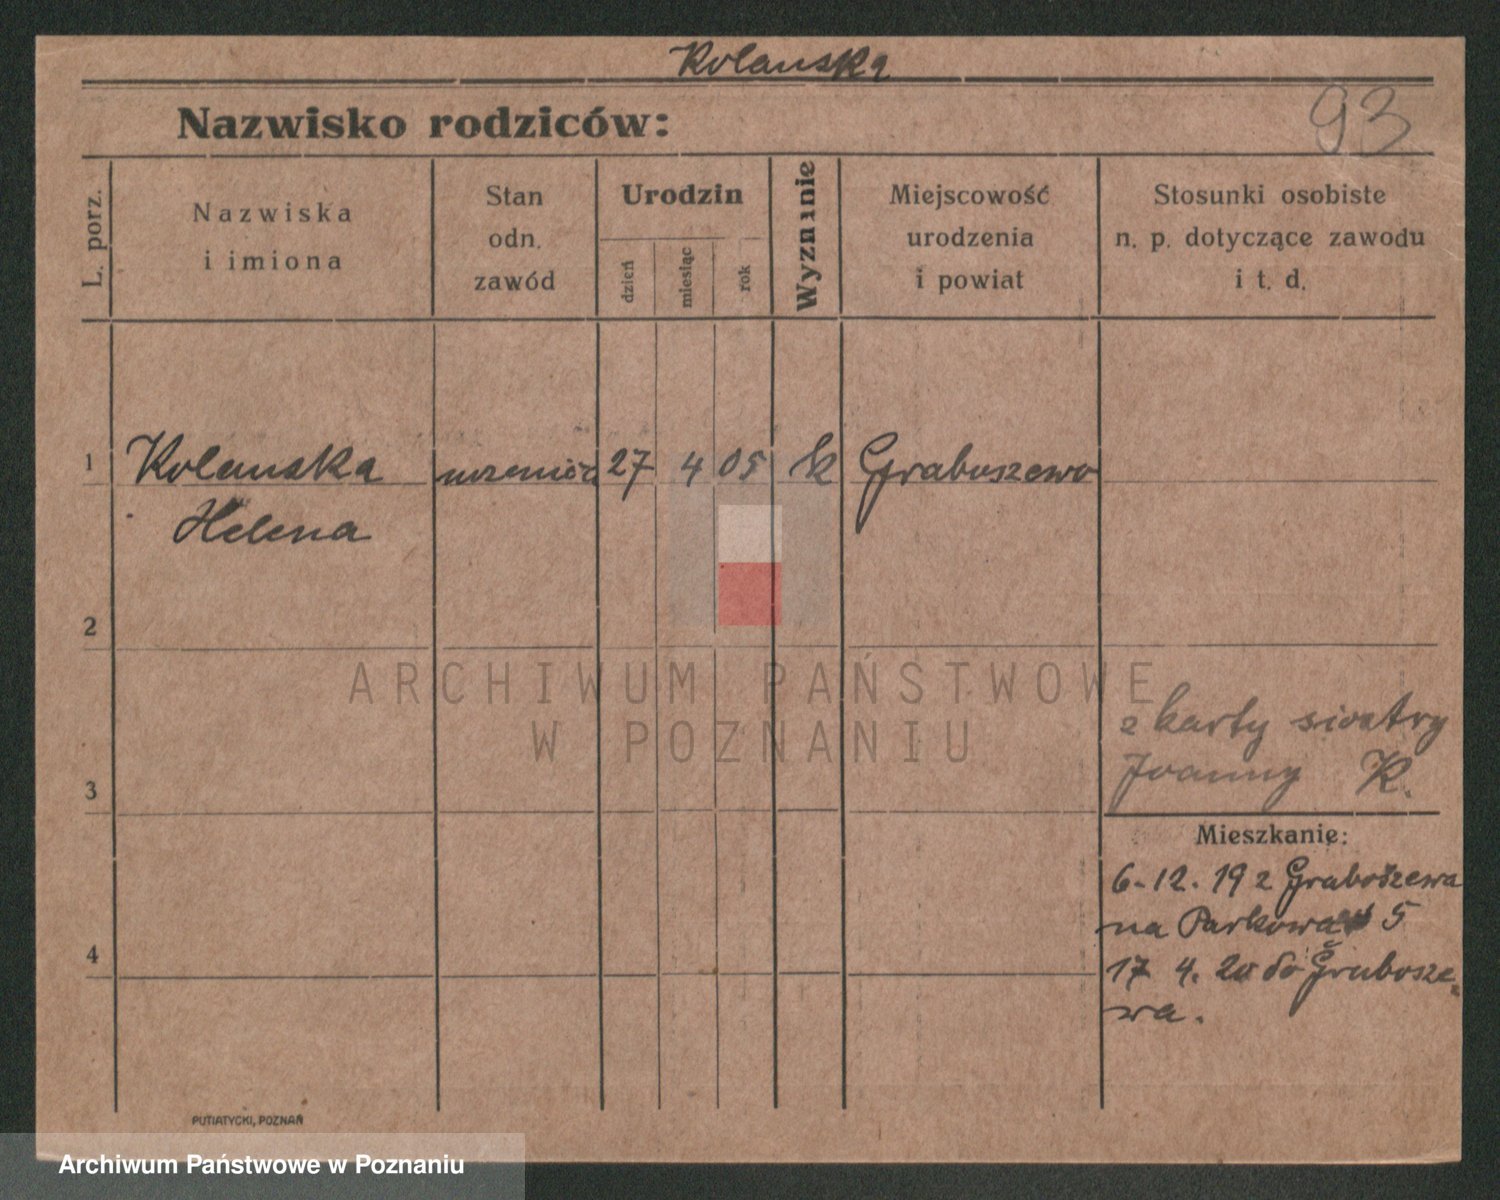 Kolanska
Nazwisko rodziców:
93
L. porz.
Nazwiska
i imiona
Stan
odn.
zawód
Urodzin
dzień
miesiąc
rok
Wyznanie
Miejscowość
urodzenia
i powiat
Stosunki osobiste
n. p. dotyczące zawodu
i t. d.
1
Kolanska 27 4 05 k Graboszewo
Helena
2
ARCHIWUM PAŃSTWOWE
W POZNANIU
z karty siostry
Joanny K.
3
Mieszkanie:
6-12. 19 z Graboszewa
na Parkowa 5
17 4. 20 do Grabosze=
wa.
4
PUTIATYCKI, POZNAŃ
Archiwum Państwowe w Poznaniu